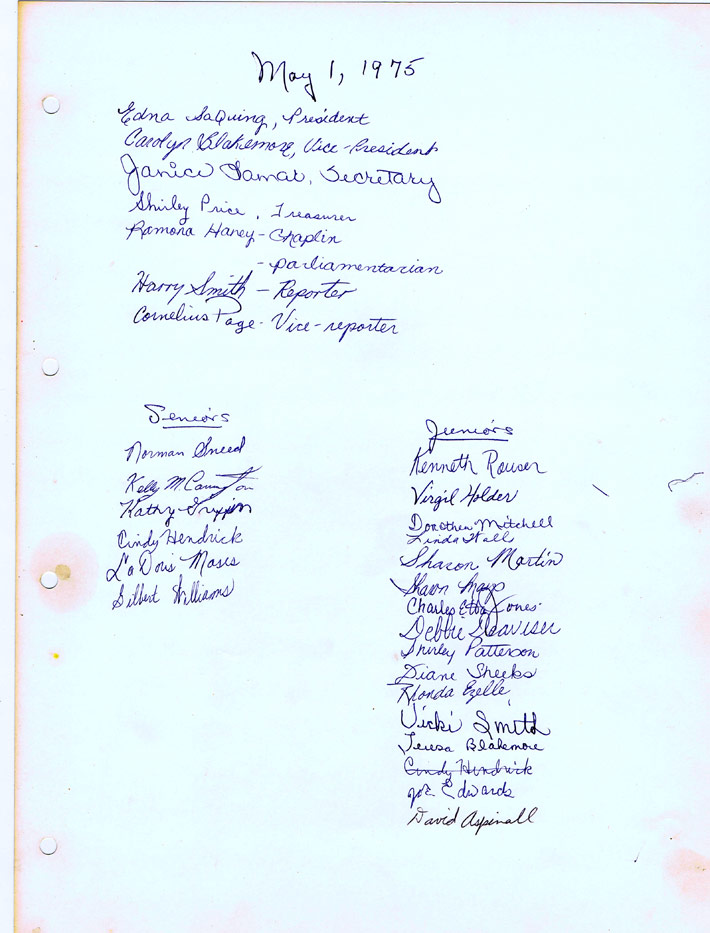 May 1, 1975
Edna SaQuing, President
Carolyn Blakemore, Vice-President
Janice Lamar, Secretary
Shirley Price, Treasurer
Ramona Haney - Chaplin
- parliamentarian
Harry Smith - Reporter
Cornelius Page - Vice-reporter
Seniors
Norman Sneed
Kelly
Kathy Griffin
Cindy Hendrick
La Doris Moses
Gilbert Williams
Juniors
Kenneth Rouser
Virgil Holder
Dorothea Mitchell
Linda Walls
Sharon Martin
Shawn Mayo
Charles Jones
Debbie
Shirley Patterson
Diane Sheeks
Rhonda Ezelle
Vicki Smith
Teresa Blakemore
Cindy Hendrick
Joe Edwards
David Aspinall